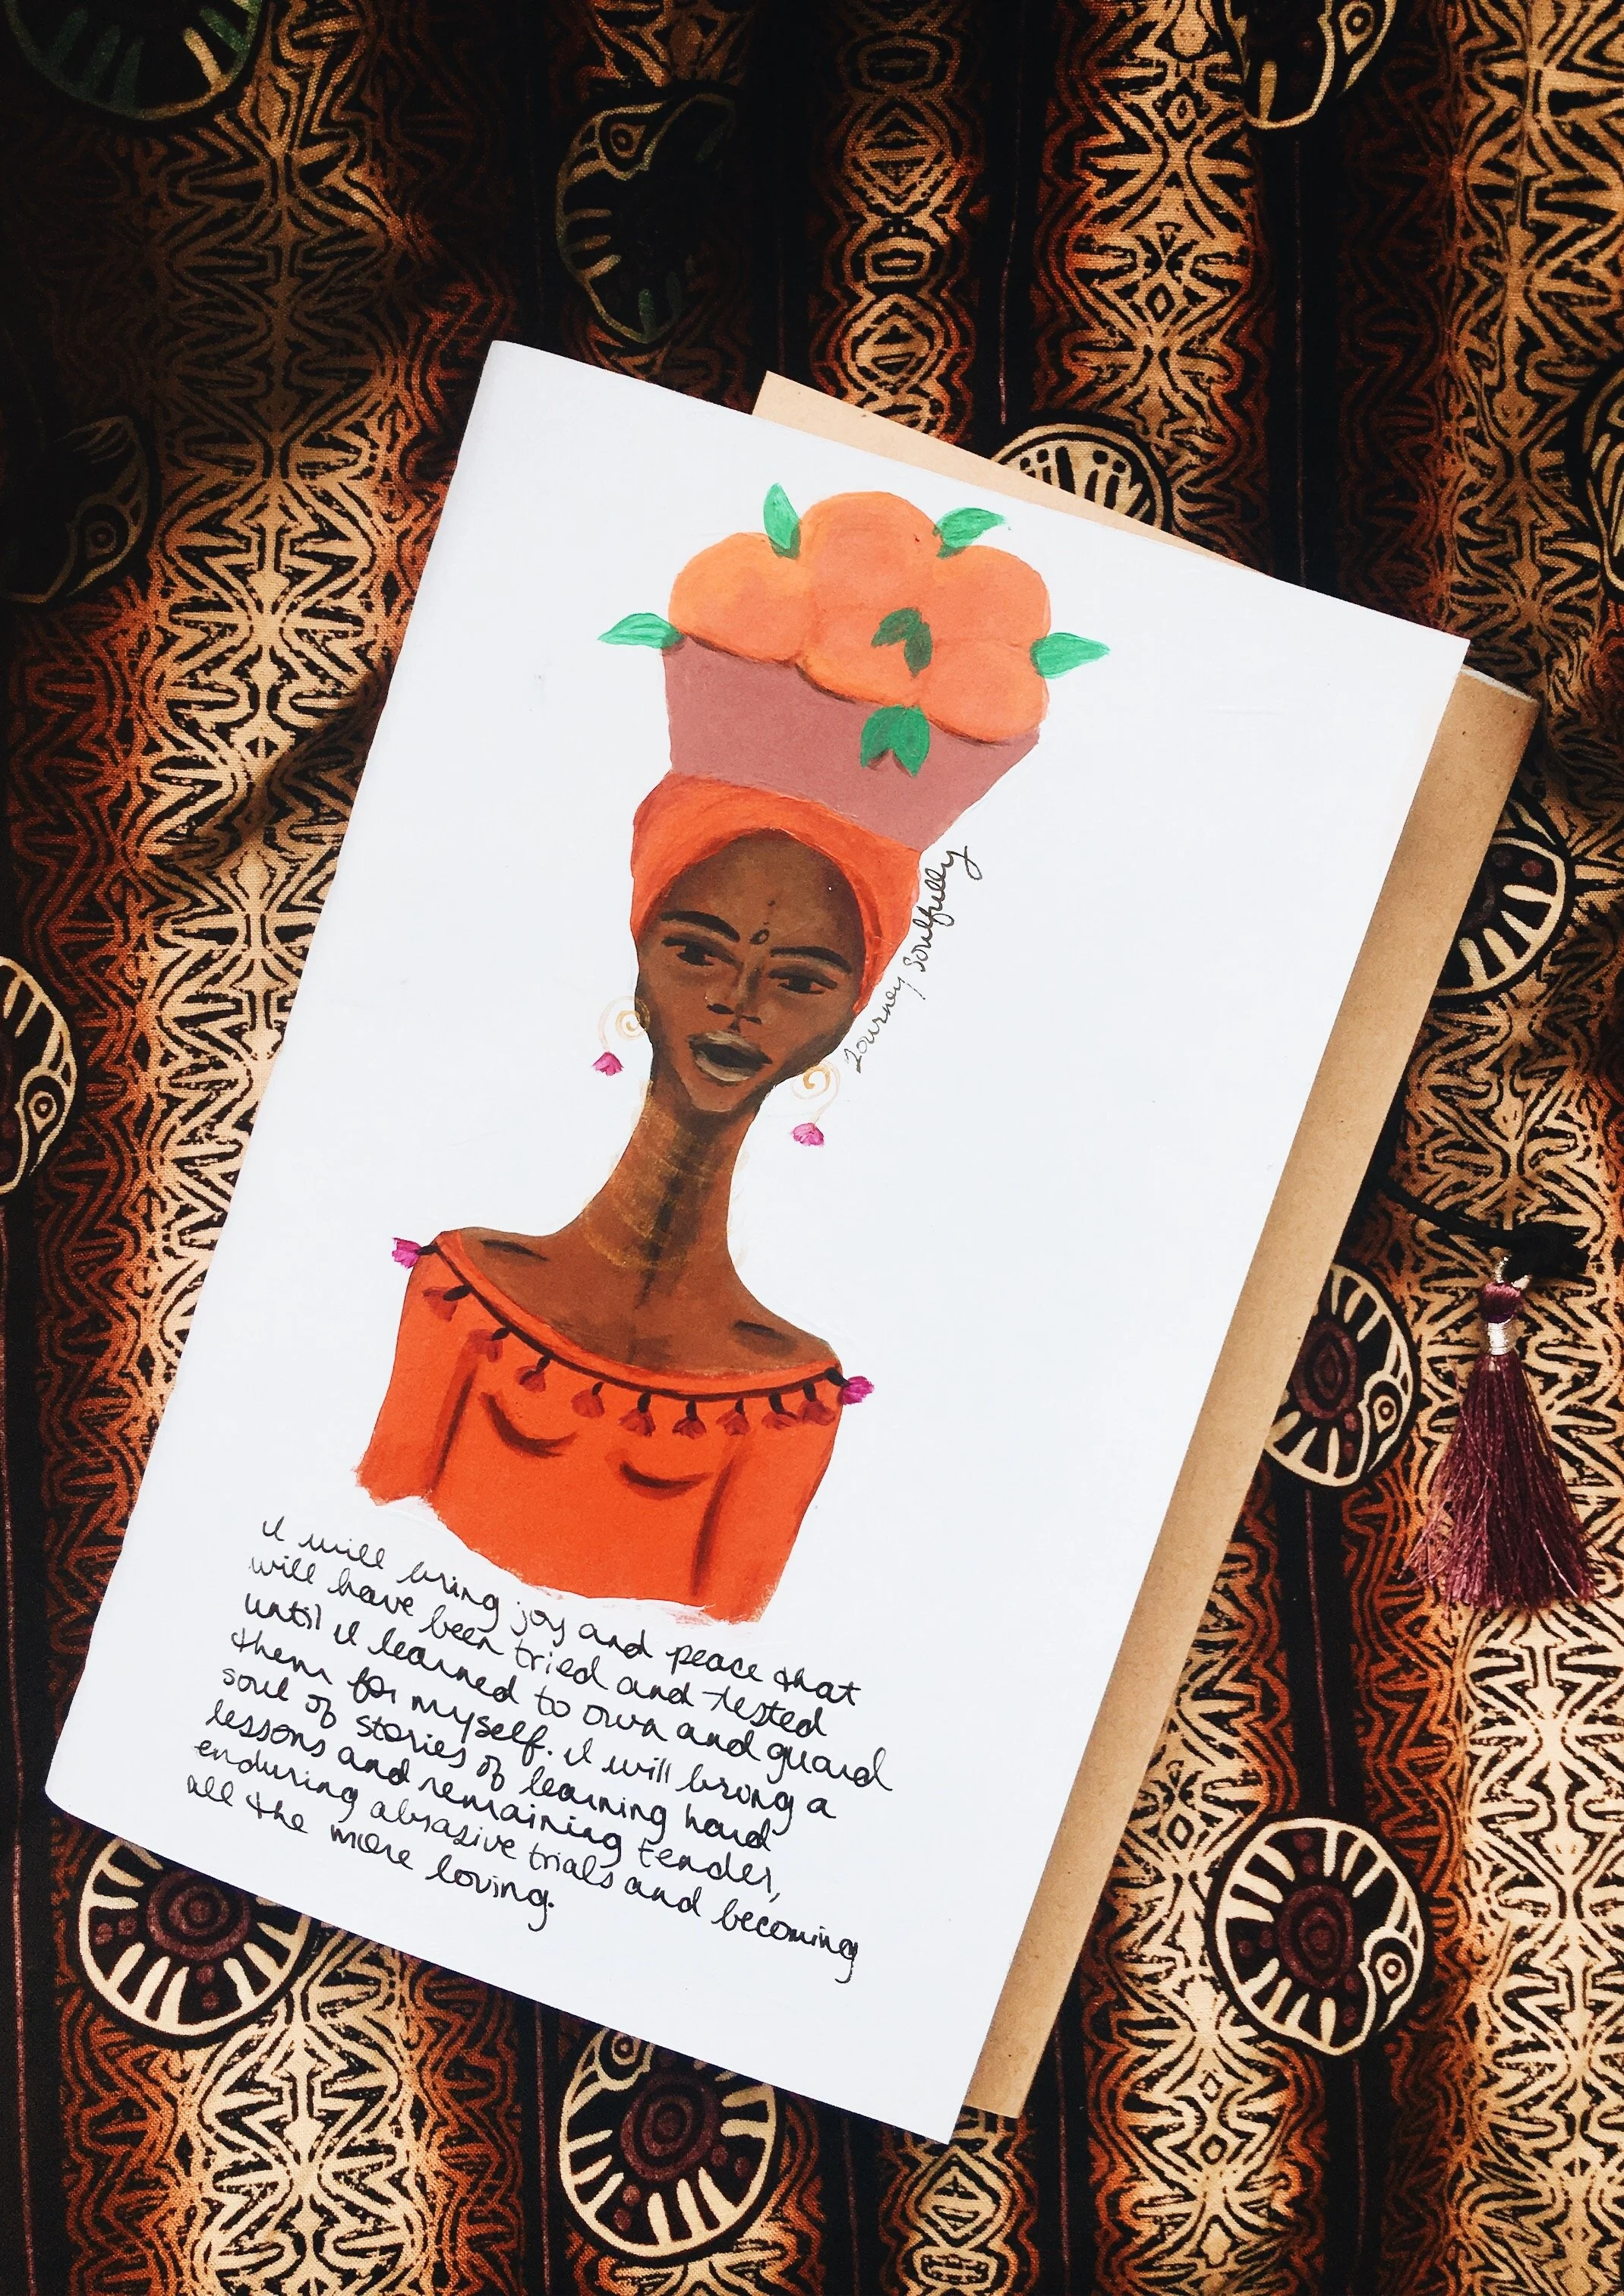 Journey Soulfully
I will bring joy and peace that
will have been tried and tested
until I learned to own and guard
them for myself. I will bring a
soul of stories of learning hard
lessons and remaining tender,
enduring abrasive trials and becoming
all the more loving.